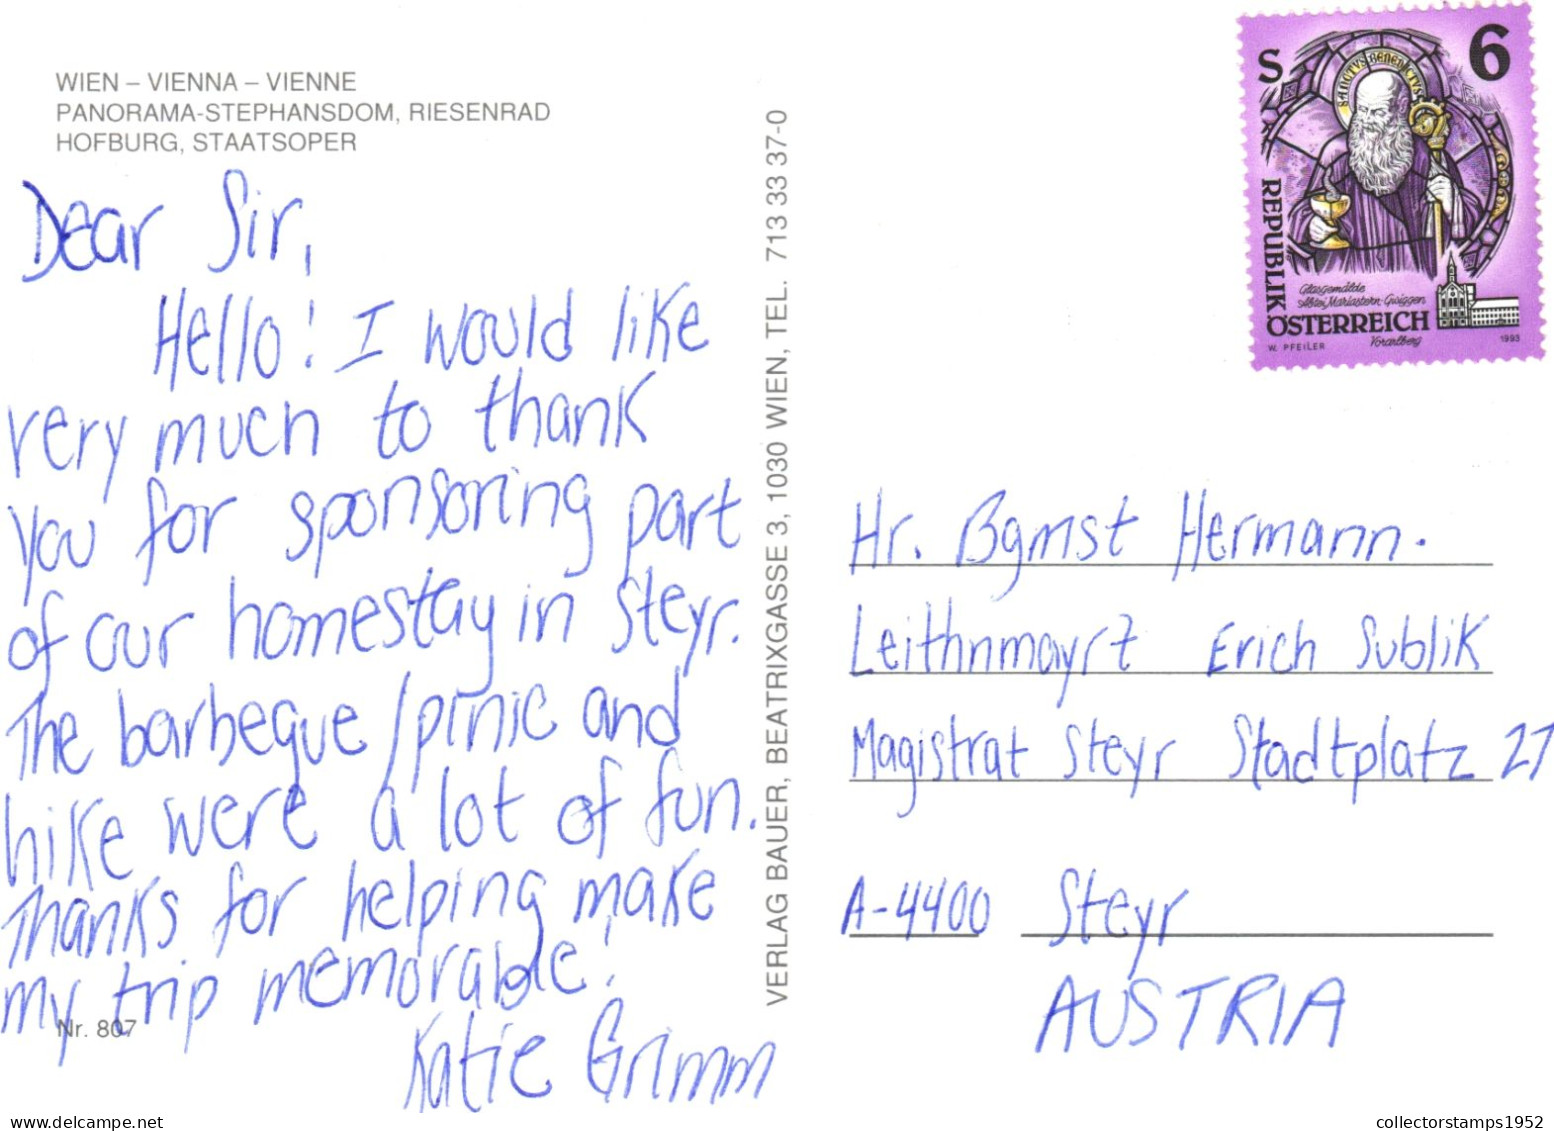 WIEN – VIENNA – VIENNE
PANORAMA-STEPHANSDOM, RIESENRAD
HOFBURG, STAATSOPER
Dear Sir,
Hello! I would like
very much to thank
you for sponsoring part
of our homestay in Steyr.
The barbeque/picnic and
hike were a lot of fun.
Thanks for helping make
my trip memorable!
Katie Grimm
Nr. 807
VERLAG BAUER, BEATRIXGASSE 3, 1030 WIEN, TEL. 713 33 37-0
S 6
SANCTVS BENEDICTVS
REPUBLIK
Glasgemälde
Abtei Mariastern-Gwiggen
ÖSTERREICH
Vorarlberg
W. PFEILER
1993
Hr. Bgmst Hermann.
Leithnmayrz Erich Sublik
Magistrat Steyr Stadtplatz 27
A-4400 Steyr
AUSTRIA
delcampe.net
collectorstamps1952